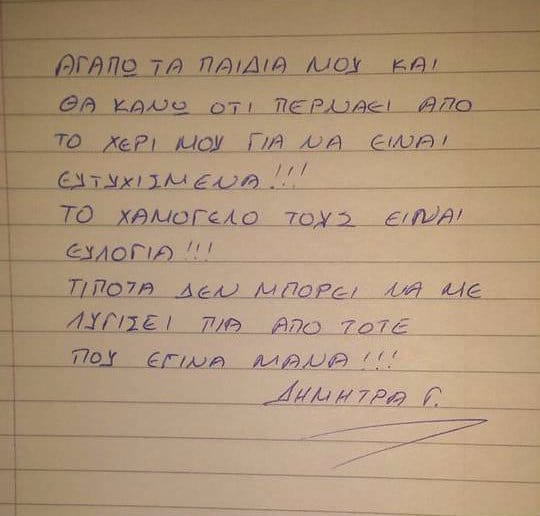 ΑΓΑΠΩ ΤΑ ΠΑΙΔΙΑ ΜΟΥ ΚΑΙ
ΘΑ ΚΑΝΩ ΟΤΙ ΠΕΡΝΑΕΙ ΑΠΟ
ΤΟ ΧΕΡΙ ΜΟΥ ΓΙΑ ΝΑ ΕΙΝΑΙ
ΕΥΤΥΧΙΣΜΕΝΑ!!!
ΤΟ ΧΑΜΟΓΕΛΟ ΤΟΥΣ ΕΙΝΑΙ
ΕΥΛΟΓΙΑ!!!
ΤΙΠΟΤΑ ΔΕΝ ΜΠΟΡΕΙ ΝΑ ΜΕ
ΛΥΓΙΣΕΙ ΠΙΑ ΑΠΟ ΤΟΤΕ
ΠΟΥ ΕΓΙΝΑ ΜΑΝΑ!!!
ΔΗΜΗΤΡΑ Γ.